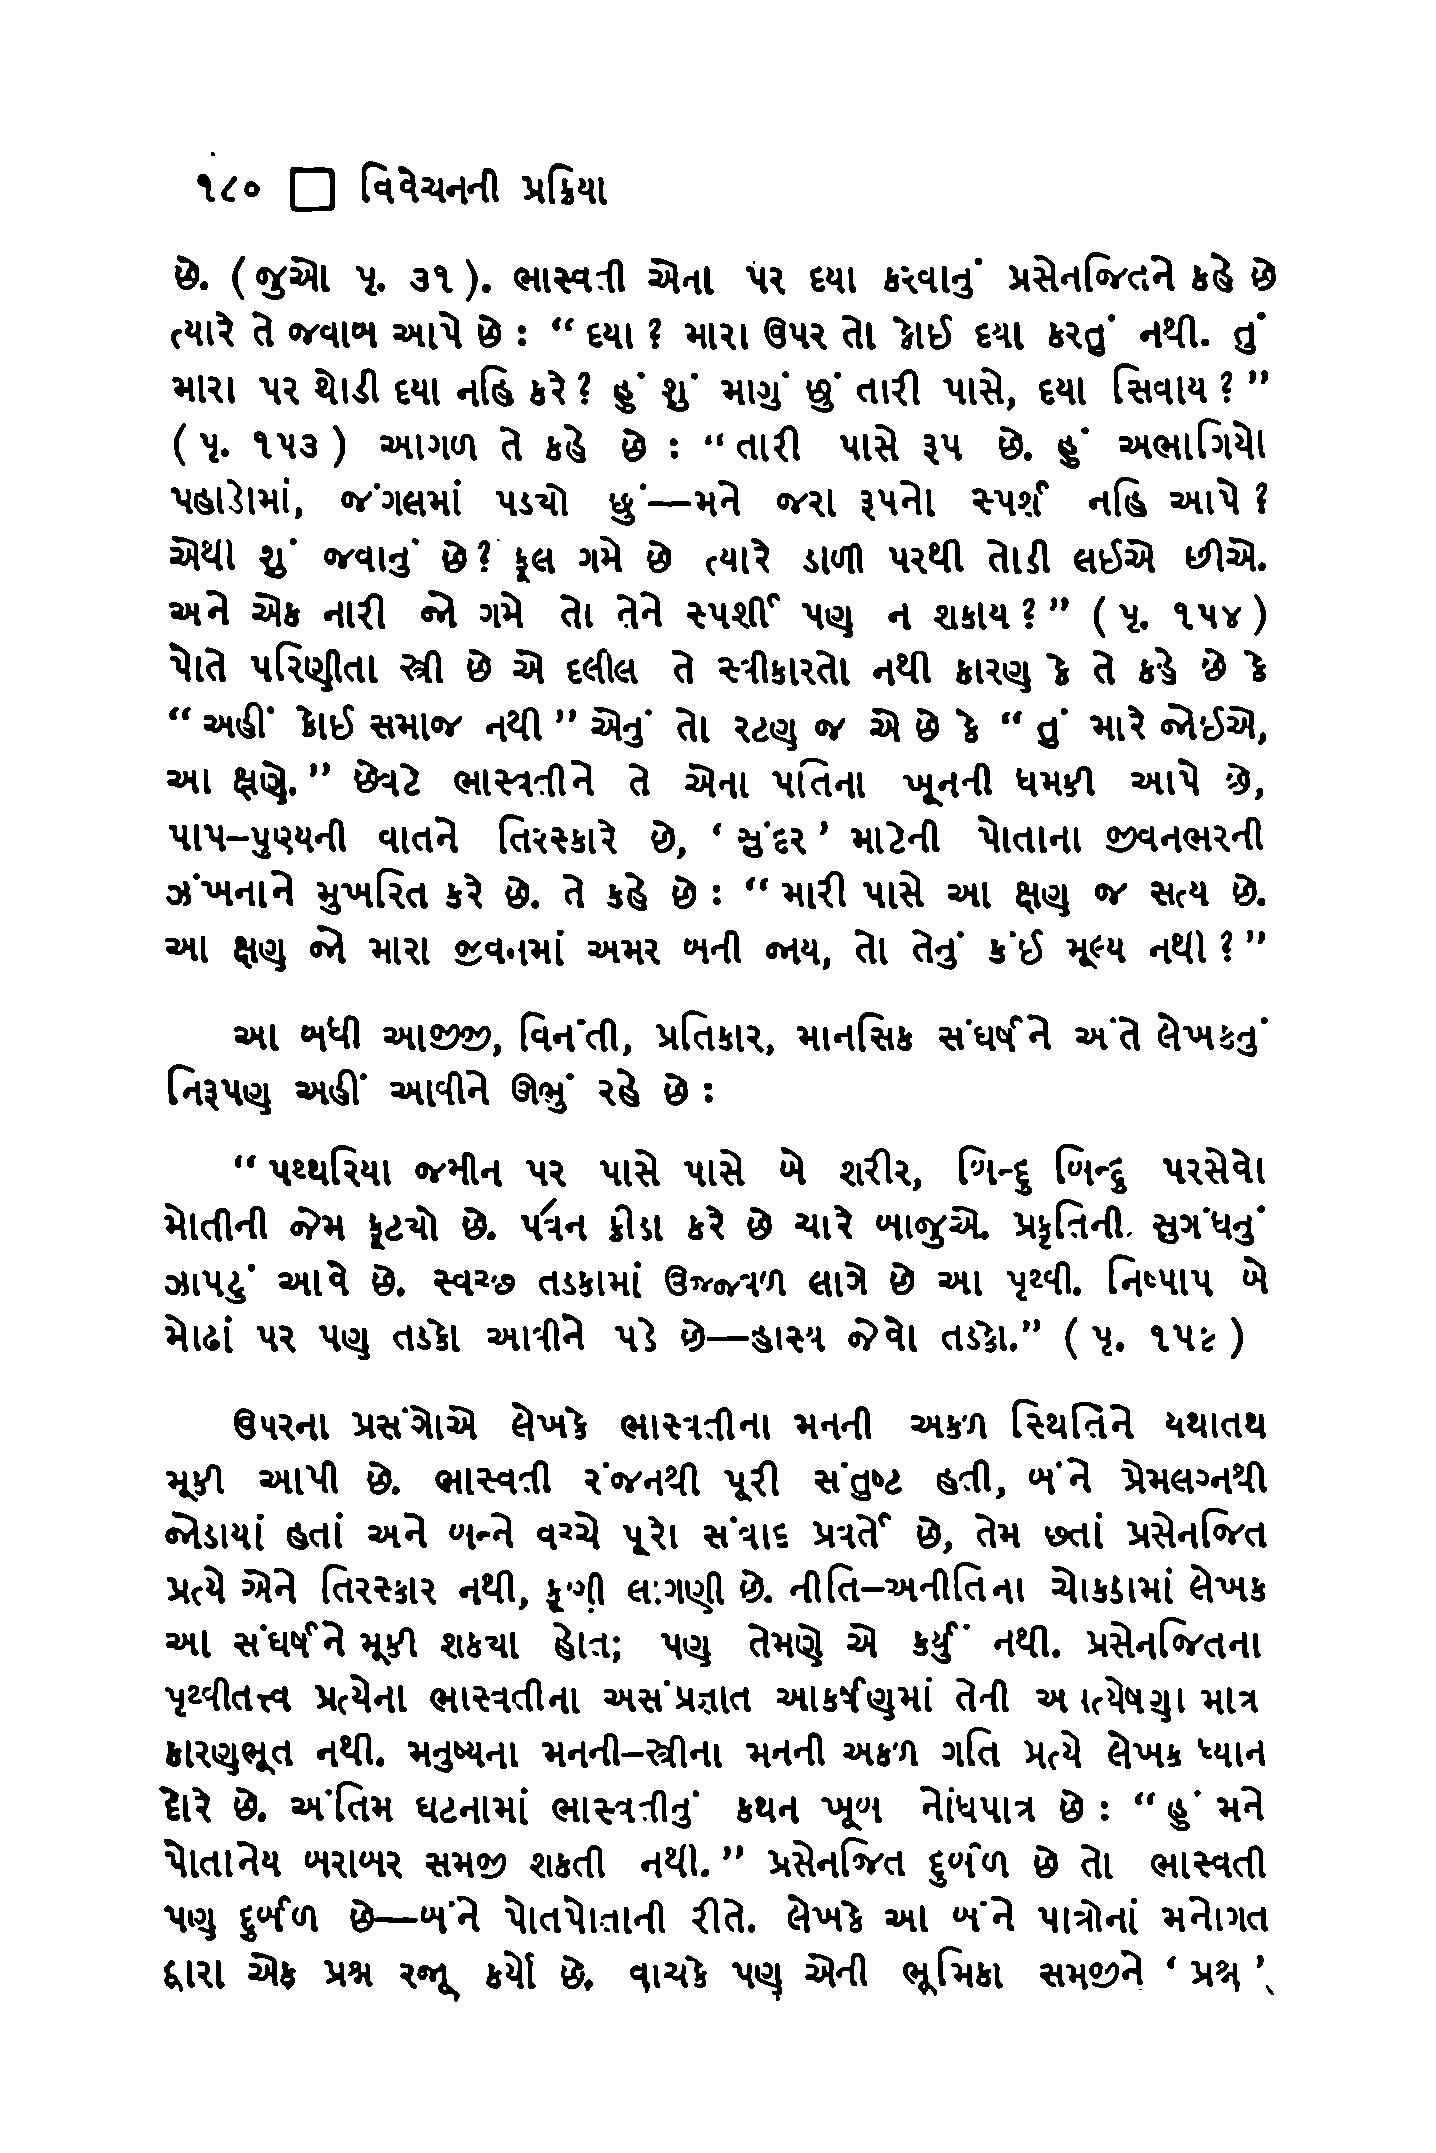 ૧૮૦ □ વિવેચનની પ્રક્રિયા
છે. (જુઓ પૃ. ૩૧). ભાસ્વતી એના પર દયા કરવાનું પ્રસેનજિતને કહે છે
ત્યારે તે જવાબ આપે છે : “ દયા ? મારા ઉપર તો કોઈ દયા કરતું નથી. તું
મારા પર થોડી દયા નહિ કરે ? હું શું માગું છું તારી પાસે, દયા સિવાય ? ”
( પૃ. ૧૫૩ ) આગળ તે કહે છે : “ તારી પાસે રૂપ છે. હું અભાગિયો
પહાડોમાં, જંગલમાં પડ્યો છું—મને જરા રૂપનો સ્પર્શ નહિ આપે ?
એથી શું જવાનું છે ? ફૂલ ગમે છે ત્યારે ડાળી પરથી તોડી લઈએ છીએ.
અને એક નારી જો ગમે તો તેને સ્પર્શી પણ ન શકાય ? ” ( પૃ. ૧૫૪ )
પોતે પરિણીતા સ્ત્રી છે એ દલીલ તે સ્વીકારતો નથી કારણ કે તે કહે છે કે
“ અહીં કોઈ સમાજ નથી ” એનું તો રટણ જ એ છે કે “ તું મારે જોઈએ,
આ ક્ષણે. ” છેવટે ભાસ્વતીને તે એના પતિના ખૂનની ધમકી આપે છે,
પાપ–પુણ્યની વાતને તિરસ્કારે છે, ‘ સુંદર ’ માટેની પોતાના જીવનભરની
ઝંખનાને મુખરિત કરે છે. તે કહે છે : “ મારી પાસે આ ક્ષણ જ સત્ય છે.
આ ક્ષણ જો મારા જીવનમાં અમર બની જાય, તો તેનું કંઈ મૂલ્ય નથી ? ”
આ બધી આજીજી, વિનંતી, પ્રતિકાર, માનસિક સંઘર્ષને અંતે લેખકનું
નિરૂપણ અહીં આવીને ઊભું રહે છે :
“ પથ્થરિયા જમીન પર પાસે પાસે બે શરીર, બિન્દુ બિન્દુ પરસેવો
મોતીની જેમ ફૂટ્યો છે. પવન ક્રીડા કરે છે ચારે બાજુએ. પ્રકૃતિની સુગંધનું
ઝાપટું આવે છે. સ્વચ્છ તડકામાં ઉજ્જ્વળ લાગે છે આ પૃથ્વી. નિષ્પાપ બે
મોઢાં પર પણ તડકો આવીને પડે છે—હાસ્ય જેવો તડકો. ” ( પૃ. ૧૫૪ )
ઉપરના પ્રસંગોએ લેખકે ભાસ્વતીના મનની અકળ સ્થિતિને યથાતથ
મૂકી આપી છે. ભાસ્વતી રંજનથી પૂરી સંતુષ્ટ હતી, બંને પ્રેમલગ્નથી
જોડાયાં હતાં અને બન્ને વચ્ચે પૂરો સંવાદ પ્રવર્તે છે, તેમ છતાં પ્રસેનજિત
પ્રત્યે એને તિરસ્કાર નથી, કૂણી લાગણી છે. નીતિ–અનીતિના ચોકઠામાં લેખક
આ સંઘર્ષને મૂકી શક્યા હોત; પણ તેમણે એ કર્યું નથી. પ્રસેનજિતના
પૃથ્વીતત્ત્વ પ્રત્યેના ભાસ્વતીના અસંપ્રજ્ઞાત આકર્ષણમાં તેની માત્ર
કારણભૂત નથી. મનુષ્યના મનની–સ્ત્રીના મનની અકળ ગતિ પ્રત્યે લેખક ધ્યાન
દોરે છે. અંતિમ ઘટનામાં ભાસ્વતીનું કથન ખૂબ નોંધપાત્ર છે : “ હું મને
પોતાનેય બરાબર સમજી શકતી નથી. ” પ્રસેનજિત દુર્બળ છે તો ભાસ્વતી
પણ દુર્બળ છે—બંને પોતપોતાની રીતે. લેખકે આ બંને પાત્રોનાં મનોગત
દ્વારા એક પ્રશ્ન રજૂ કર્યો છે. વાચકે પણ એની ભૂમિકા સમજીને ‘ પ્રશ્ન ’